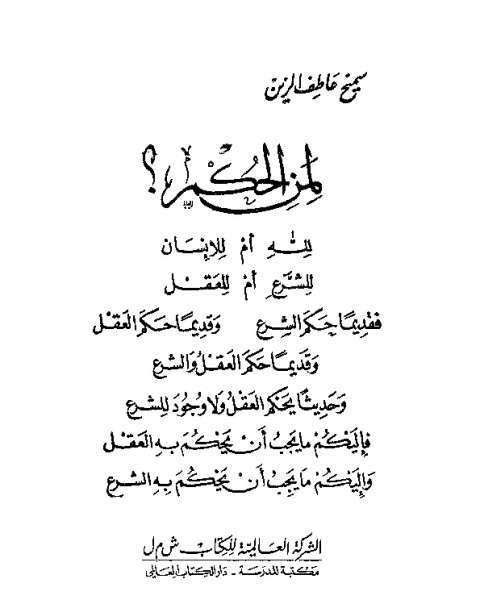 سميح عاطف الزين
لمن الحكم؟
لِلّٰهِ أم للإنسان
للشرع أم للعقل
فقديمًا حكم الشرع وقديمًا حكم العقل
وقديمًا حكم العقل والشرع
وحديثًا يحكم العقل ولا وجود للشرع
فإليكم ما يجب أن يحكم به العقل
وإليكم ما يجب أن يحكم به الشرع
الشركة العالمية للكتاب ش م ل
مكتبة المدرسة - دار الكتاب العالمي